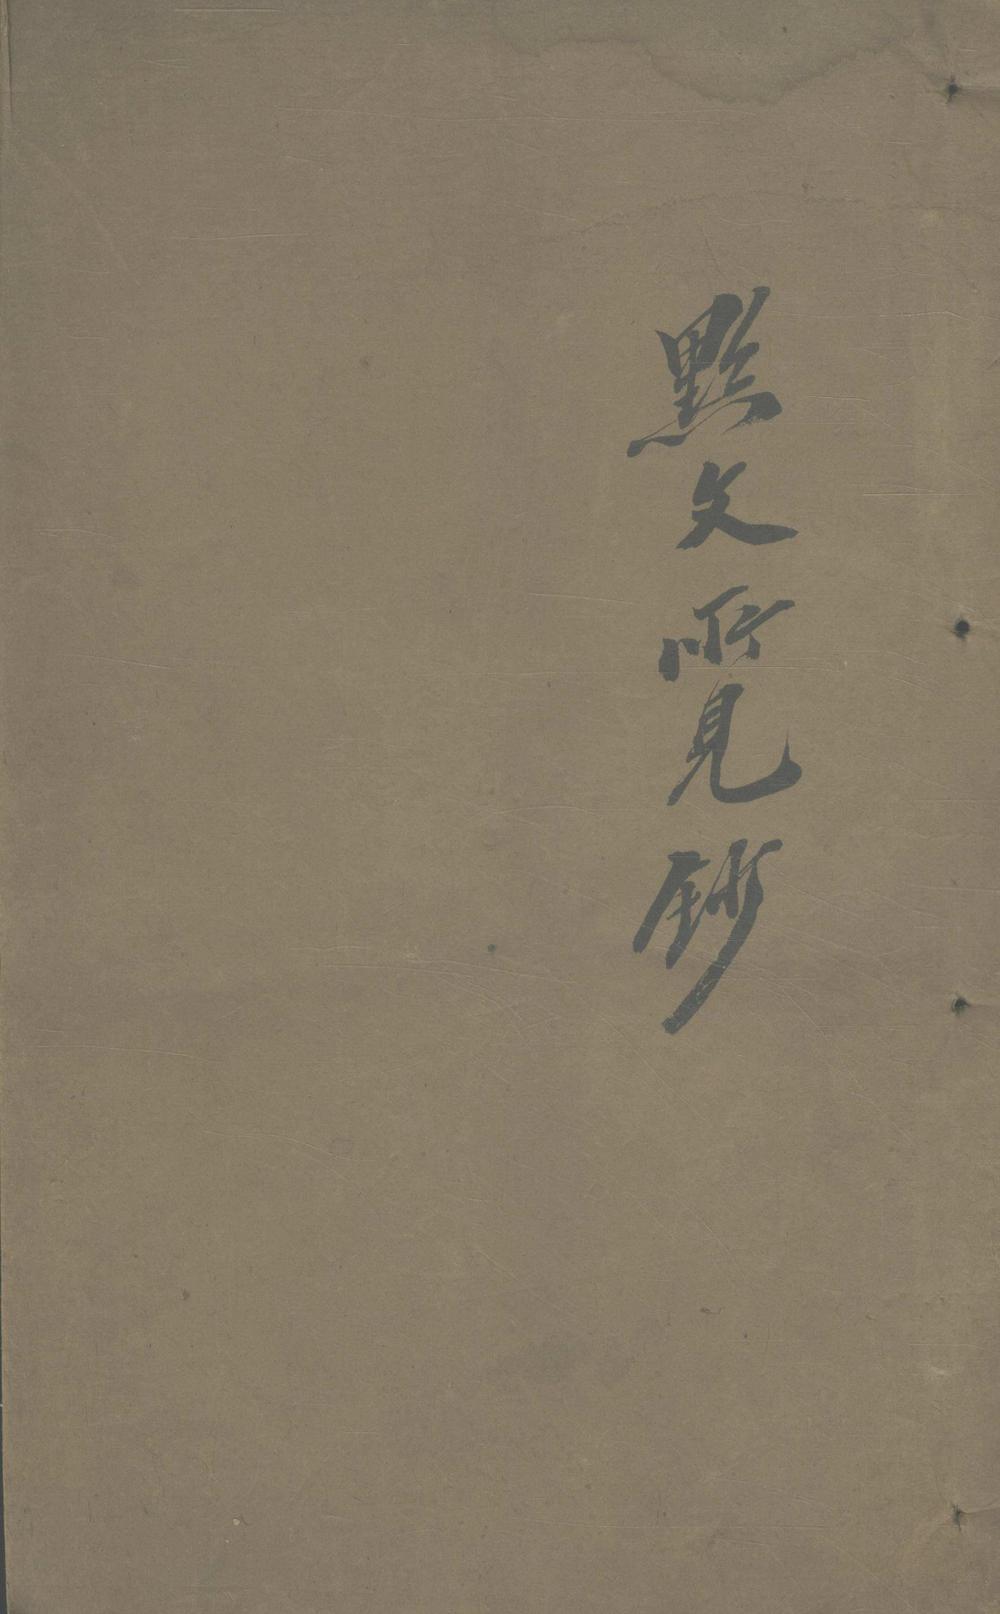 黟文所見鈔